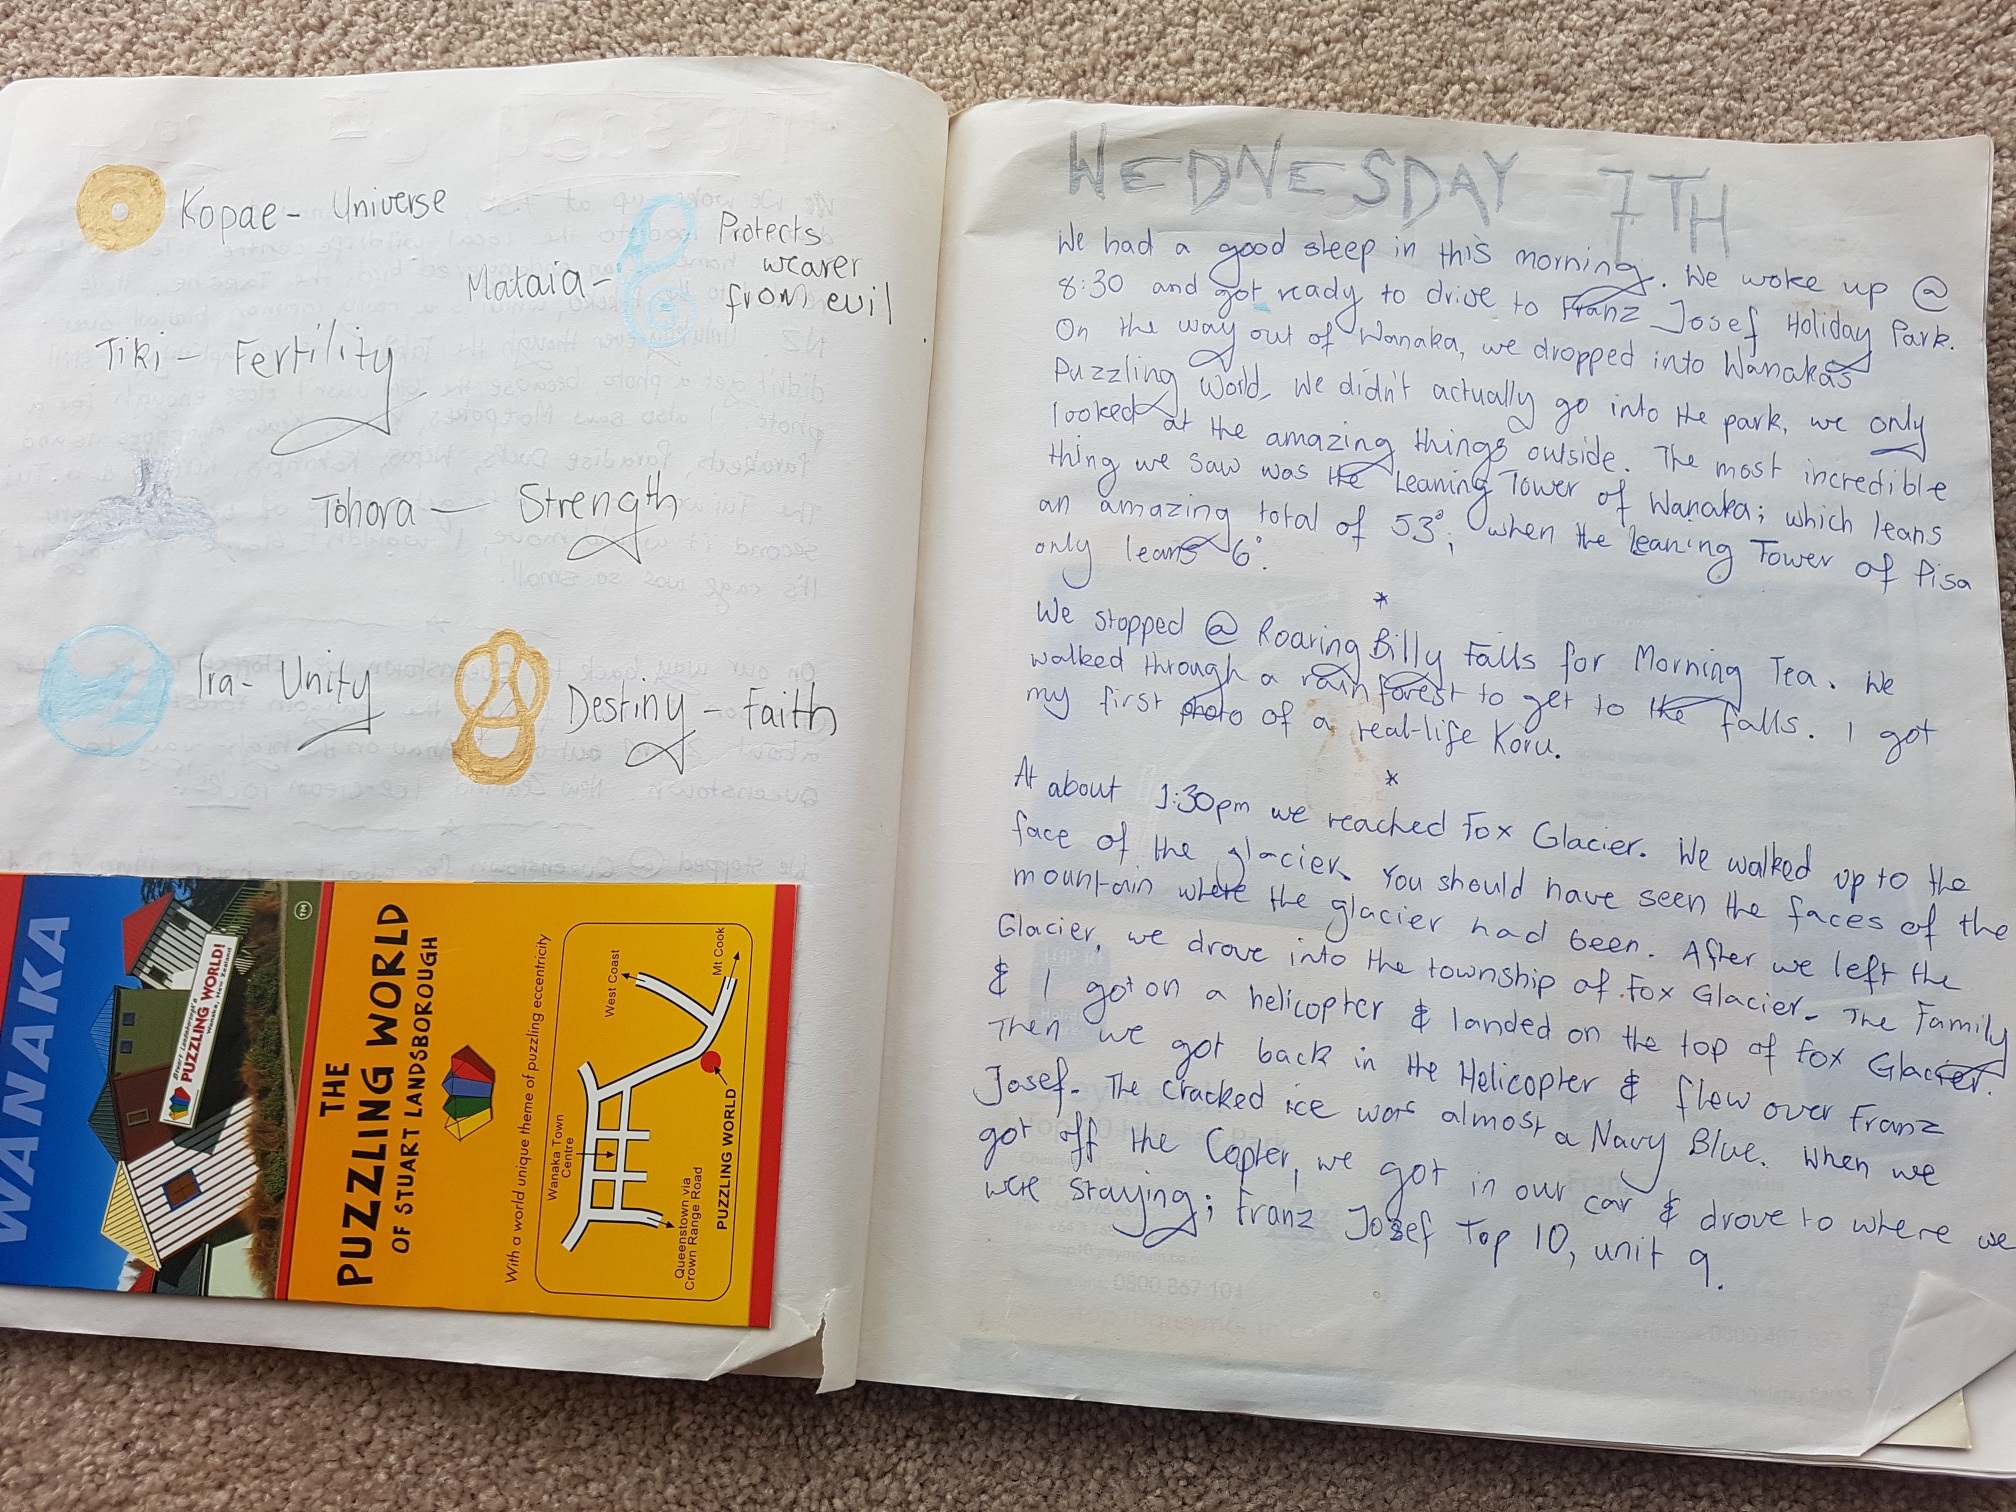 Kopae - Universe
Mataia -
Protects
wearer
from evil
Tiki - Fertility
Tohora - Strength
Ira - Unity
Destiny - Faith
WANAKA
Stuart Landsborough's
PUZZLING WORLD!
Wanaka, New Zealand
TM
THE
PUZZLING WORLD
OF STUART LANDSBOROUGH
With a world unique theme of puzzling eccentricity
West Coast
Mt Cook
Wanaka Town
Centre
PUZZLING WORLD
Queenstown via
Crown Range Road
WEDNESDAY 7TH
We had a good sleep in this morning. We woke up @
8:30 and got ready to drive to Franz Josef Holiday Park.
On the way out of Wanaka, we dropped into Wanakas
Puzzling World, we didn't actually go into the park, we only
looked at the amazing things outside. The most incredible
thing we saw was the Leaning Tower of Wanaka; which leans
an amazing total of 53°; when the leaning Tower of Pisa
only leans 6°.
*
We stopped @ Roaring Billy Falls for Morning Tea. We
walked through a rainforest to get to the falls. I got
my first photo of a real-life Koru.
*
At about 1:30pm we reached Fox Glacier. We walked up to the
face of the glacier. You should have seen the faces of the
mountain where the glacier had been. After we left the
Glacier, we drove into the township of Fox Glacier. The Family
& I got on a helicopter & landed on the top of Fox Glacier.
Then we got back in the Helicopter & flew over Franz
Josef. The cracked ice was almost a Navy Blue. When we
got off the Copter, we got in our car & drove to where we
were staying; Franz Josef Top 10, unit 9.